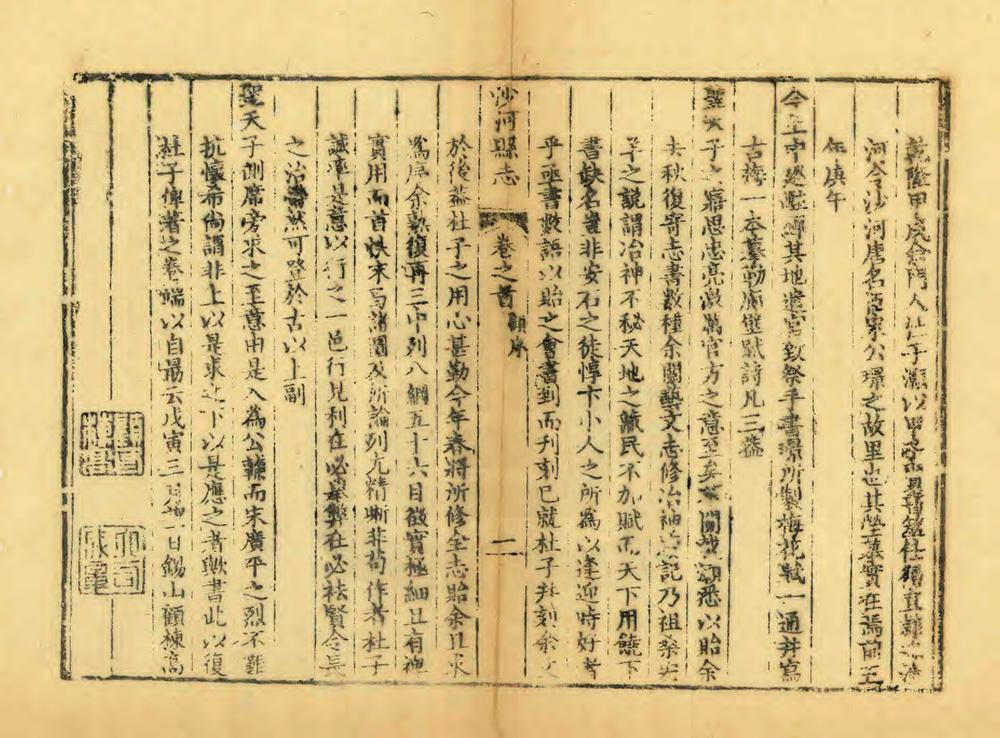 乾隆甲戌余門人杜子灝以甲子舉人謁銓仕得直隸之沙
河令沙河唐名臣宋公璟之故里也其塋墓實在焉前壬
午庚午
今上中巡駐蹕其地遣官致祭手書璟所製梅花賦一通并寫
古梅一本摹勒廊壁賦詩凡三疊
聖天子之寤思忠亮激萬官方之意至矣 開 頌悉以貽余
去秋復寄志書數種余閱藝文志修治油 記乃祖桑安
羊之說謂冶神不秘天地之藏民不加賦而天下用饒下
書缺名豈非安石之徒惇卞小人之所為以逢迎時好者
乎亟書數語以貽之會書到而刊刻已就杜子并刻余文
沙河縣志 卷之首 顧序 二
於後葢杜子之用心甚勤今年春將所修全志貽余且求
為序余熟復再三中列八綱五十六目徵實極細且有裨
實用而首帙末馬諸圖及所論列尤精晰非苟作者杜子
誠率是意以行之一邑行見利在必舉弊在必袪賢令長
之治藹然可登於古以上副
聖天子側席旁求之至意由是入為公輔而宋廣平之烈不難
抗懷希尚謂非上以是求之下以是應之者歟書此以復
杜子俾著之卷端以自勗云戊寅三月 一日錫山顧棟高